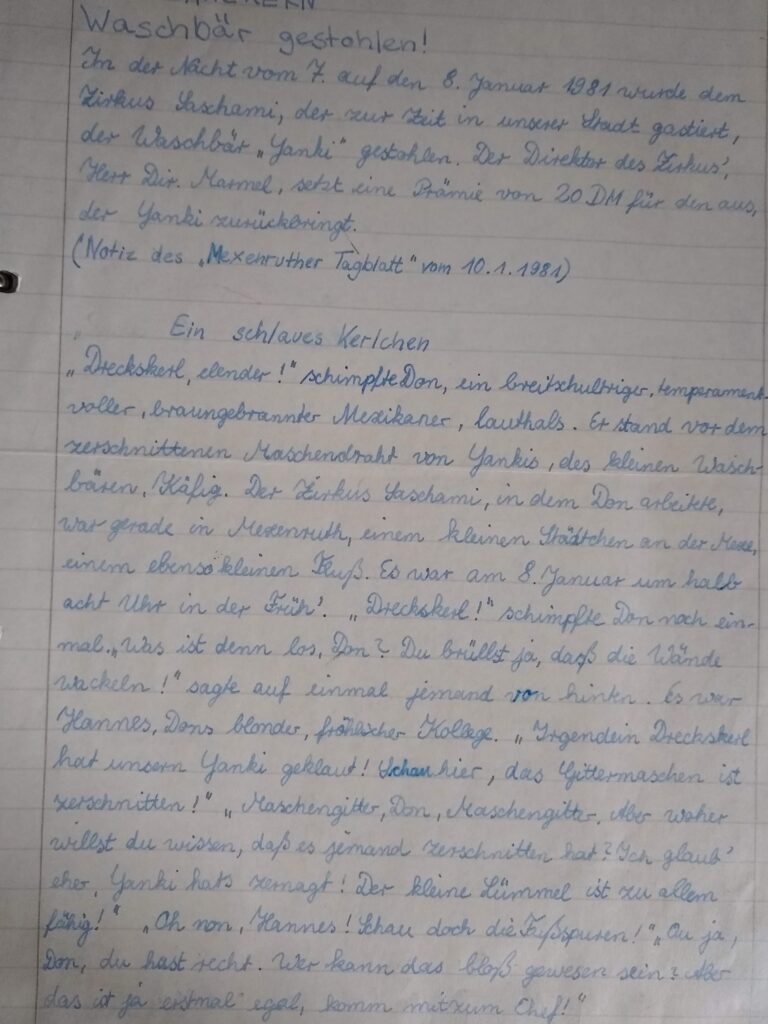 Waschbär gestohlen!
In der Nacht vom 7. auf den 8. Januar 1981 wurde dem
Zirkus Saschami, der zur Zeit in unserer Stadt gastiert,
der Waschbär „Yanki" gestohlen. Der Direktor des Zirkus',
Herr Dir. Marmel, setzt eine Prämie von 20 DM für den aus,
der Yanki zurückbringt.
(Notiz des „Mexenruther Tagblatt" vom 10.1.1981)
Ein schlaues Kerlchen
„Dreckskerl, elender!" schimpfte Don, ein breitschultriger, temperament-
voller, braungebrannter Mexikaner, lauthals. Er stand vor dem
zerschnittenen Maschendraht von Yankis, des kleinen Wasch-
bären, Käfig. Der Zirkus Saschami, in dem Don arbeitete,
war gerade in Mexenruth, einem kleinen Städtchen an der Mexe,
einem ebenso kleinen Fluß. Es war am 8. Januar um halb
acht Uhr in der Früh'. „Dreckskerl!" schimpfte Don noch ein-
mal. „Was ist denn los, Don? Du brüllst ja, daß die Wände
wackeln!" sagte auf einmal jemand von hinten. Es war
Hannes, Dons blonder, fröhlicher Kollege. „Irgendein Dreckskerl
hat unsern Yanki geklaut! Schau hier, das Gittermaschen ist
zerschnitten!" „Maschengitter, Don, Maschengitter. Aber woher
willst du wissen, daß es jemand zerschnitten hat? Ich glaub'
eher, Yanki hats zernagt! Der kleine Lümmel ist zu allem
fähig!" „Oh non, Hannes! Schau doch die Fußspuren!" „Ou ja,
Don, du hast recht. Wer kann das bloß gewesen sein? Aber
das ist ja erstmal egal, komm mit zum Chef!"